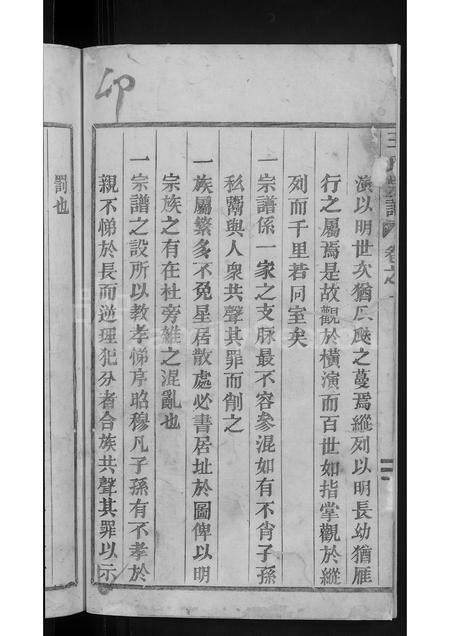 印
王氏宗譜 卷之一
演以明世次猶瓜瓞之蔓焉縱列以明長幼猶雁
行之屬焉是故觀於橫演而百世如指掌觀於縱
列而千里若同室矣
一宗譜係一家之支脉最不容參混如有不肖子孫
私鬻與人衆共聲其罪而削之
一族屬繁多不免星居散處必書居址於圖俾以明
宗族之有在杜旁雜之混亂也
一宗譜之設所以教孝悌序昭穆凡子孫有不孝於
親不悌於長而逆理犯分者合族共聲其罪以示
罰也